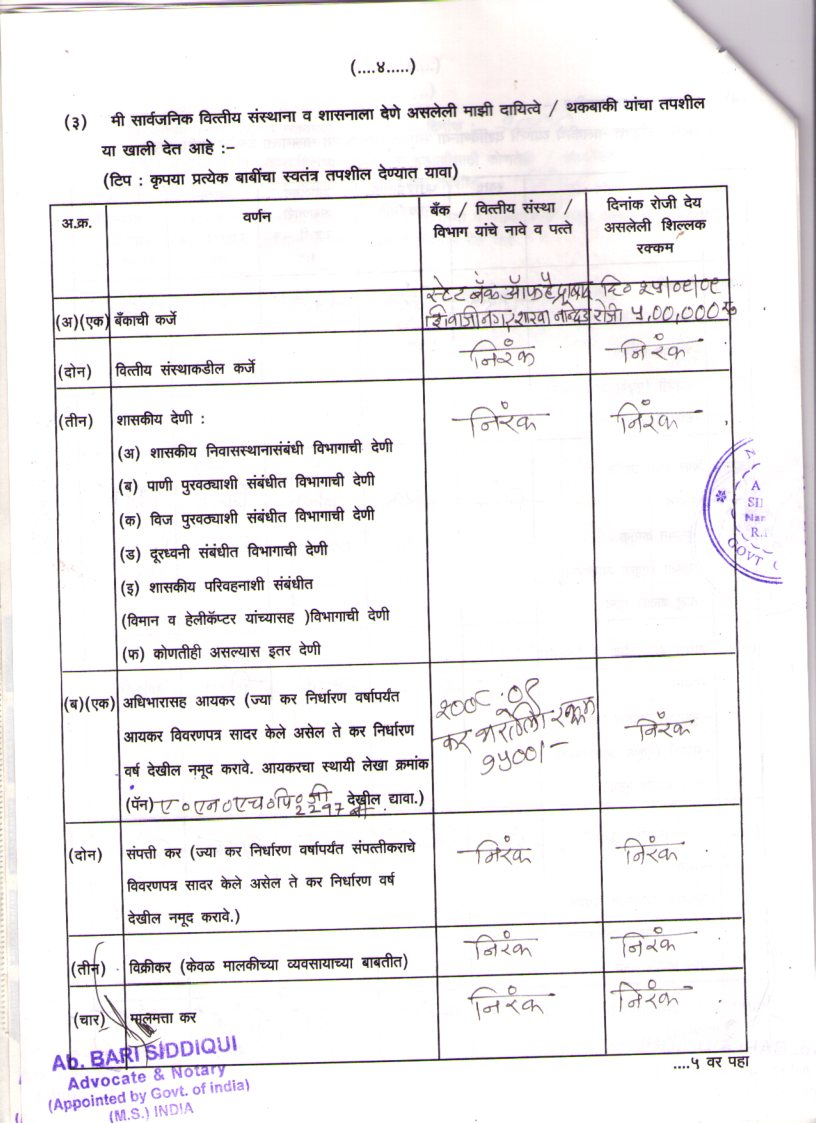 (....४.....)
(३) मी सार्वजनिक वित्तीय संस्थाना व शासनाला देणे असलेली माझी दायित्वे / थकबाकी यांचा तपशील
या खाली देत आहे :–
(टिप : कृपया प्रत्येक बाबींचा स्वतंत्र तपशील देण्यात यावा)
अ.क्र. वर्णन बँक / वित्तीय संस्था / दिनांक रोजी देय
विभाग यांचे नावे व पत्ते असलेली शिल्लक
रक्कम
स्टेट बँक ऑफ हैद्राबाद दि०
(अ)(एक) बँकाची कर्जे शिवाजीनगर शाखा नान्देड रोजी ५,00,000
(दोन) वित्तीय संस्थाकडील कर्जे निरंक निरंक
(तीन) शासकीय देणी : निरंक निरंक
(अ) शासकीय निवासस्थानासंबंधी विभागाची देणी
(ब) पाणी पुरवठ्याशी संबंधीत विभागाची देणी
(क) विज पुरवठ्याशी संबंधीत विभागाची देणी
(ड) दूरध्वनी संबंधीत विभागाची देणी
(इ) शासकीय परिवहनाशी संबंधीत
(विमान व हेलीकॅप्टर यांच्यासह )विभागाची देणी
(फ) कोणतीही असल्यास इतर देणी
(ब)(एक) अधिभारासह आयकर (ज्या कर निर्धारण वर्षापर्यंत २००८.०९
आयकर विवरणपत्र सादर केले असेल ते कर निर्धारण कर भरलेली रक्कम निरंक
वर्ष देखील नमूद करावे. आयकरचा स्थायी लेखा क्रमांक १५००/–
(पॅन) ए०एन०एच०पि०जी 2297 बी देखील द्यावा.)
(दोन) संपत्ती कर (ज्या कर निर्धारण वर्षापर्यंत संपत्तीकराचे निरंक निरंक
विवरणपत्र सादर केले असेल ते कर निर्धारण वर्ष
देखील नमूद करावे.)
(तीन) विक्रीकर (केवळ मालकीच्या व्यवसायाच्या बाबतीत) निरंक निरंक
(चार) मालमत्ता कर निरंक निरंक
....५ वर पहा
Ab. BARI SIDDIQUI
Advocate & Notary
(Appointed by Govt. of india)
(M.S.) INDIA
A
SII
Nar
R.
GOVT